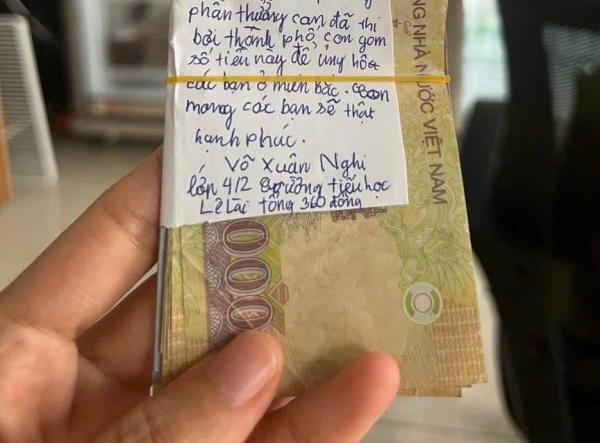 phần thưởng con đã thi
bơi thành phố, con gom
số tiền này để ủng hộ
các bạn ở miền Bắc. Con
mong các bạn sẽ thật
hạnh phúc.
Võ Xuân Nghi
lớp 4/2 trường tiểu học
Lê Lai tổng 360 đồng
NG NHÀ NƯỚC VIỆT NAM
000